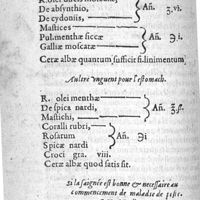 De absynthio,
De cydoniis, } Añ. ʒ.vi.
Mastices
Pul.menthæ siccæ } Añ. ℈.i.
Galliæ moscatæ
Ceræ albæ quantum sufficit fi.linimentum,
Aultre vnguent pour l'estomach.
R. olei menthæ
De spica nardi, } Añ. ʒ.ß.
Mastichi,
Coralli rubri,
Rosarum } Añ. ℈i
Spicæ nardi
Croci gra. viii.
Ceræ albæ quod satis sit.
Si la saignée est bonne & necessaire au
commencement de maladie de pest-